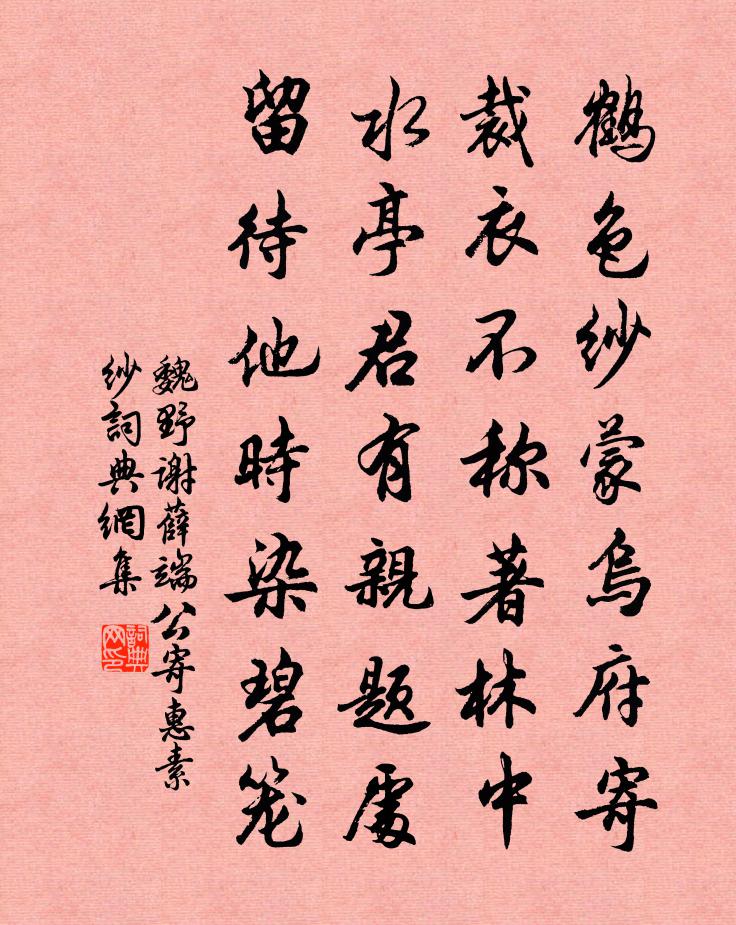 鶴色紗蒙烏府寄
裁衣不称著林中
水亭君有親題處
留待他時染碧笼
魏野谢薛端公寄惠素
纱詞典網集
詞典网印